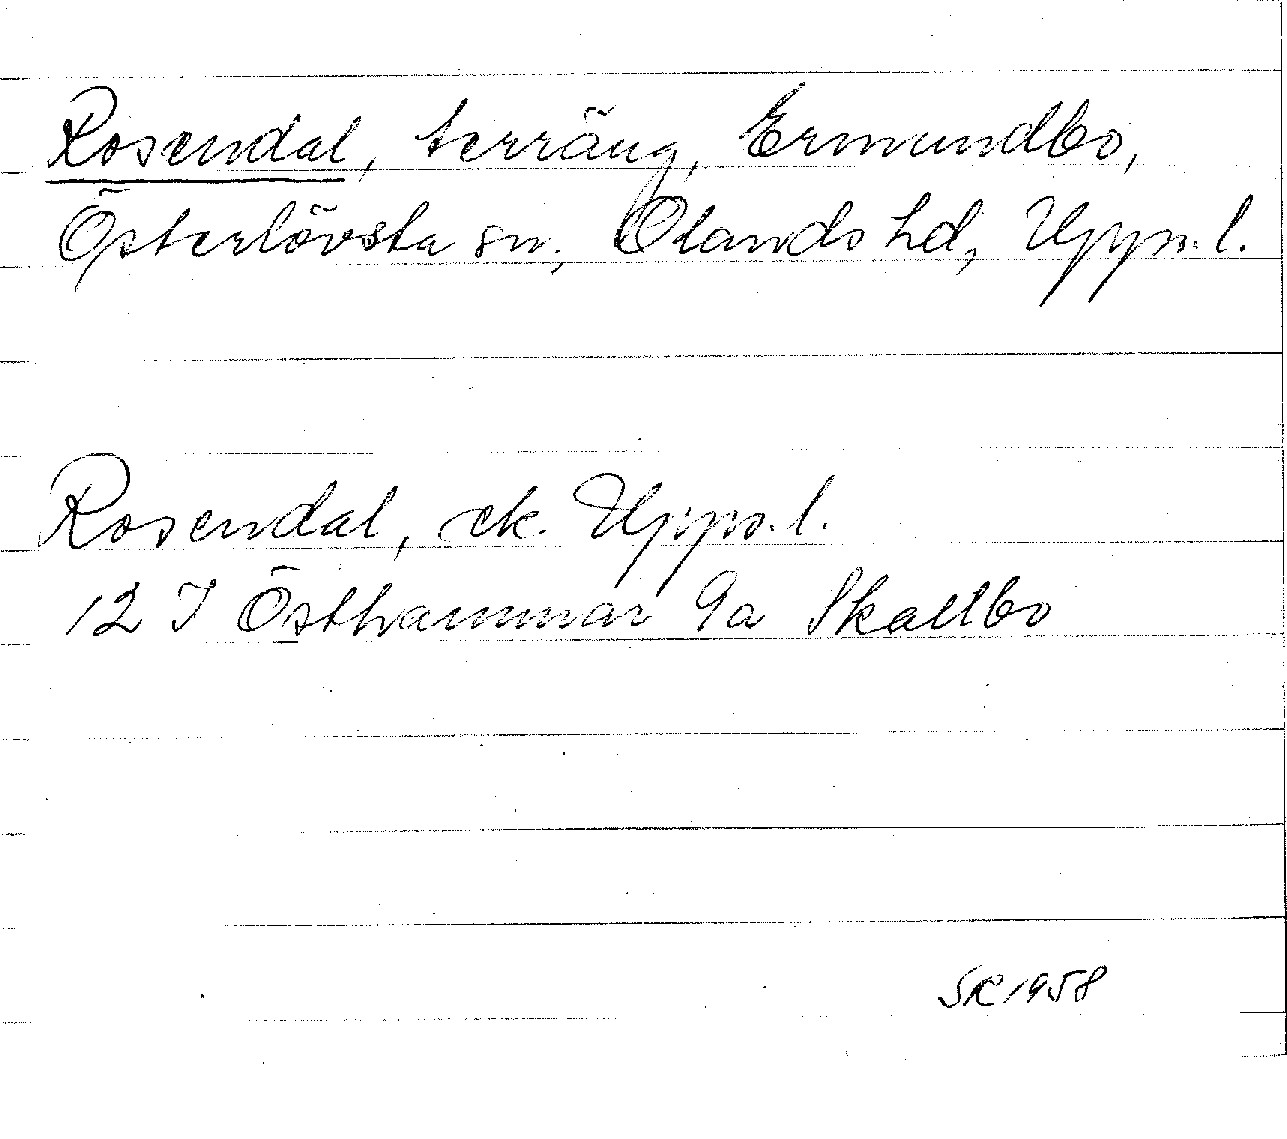 Rosendal, terräng, Ermundbo,
Österlövsta sn, Olands hd, Uppl.
Rosendal, ek. Uppl.
12 I Östhammar 9a Skallbo
SR 1958